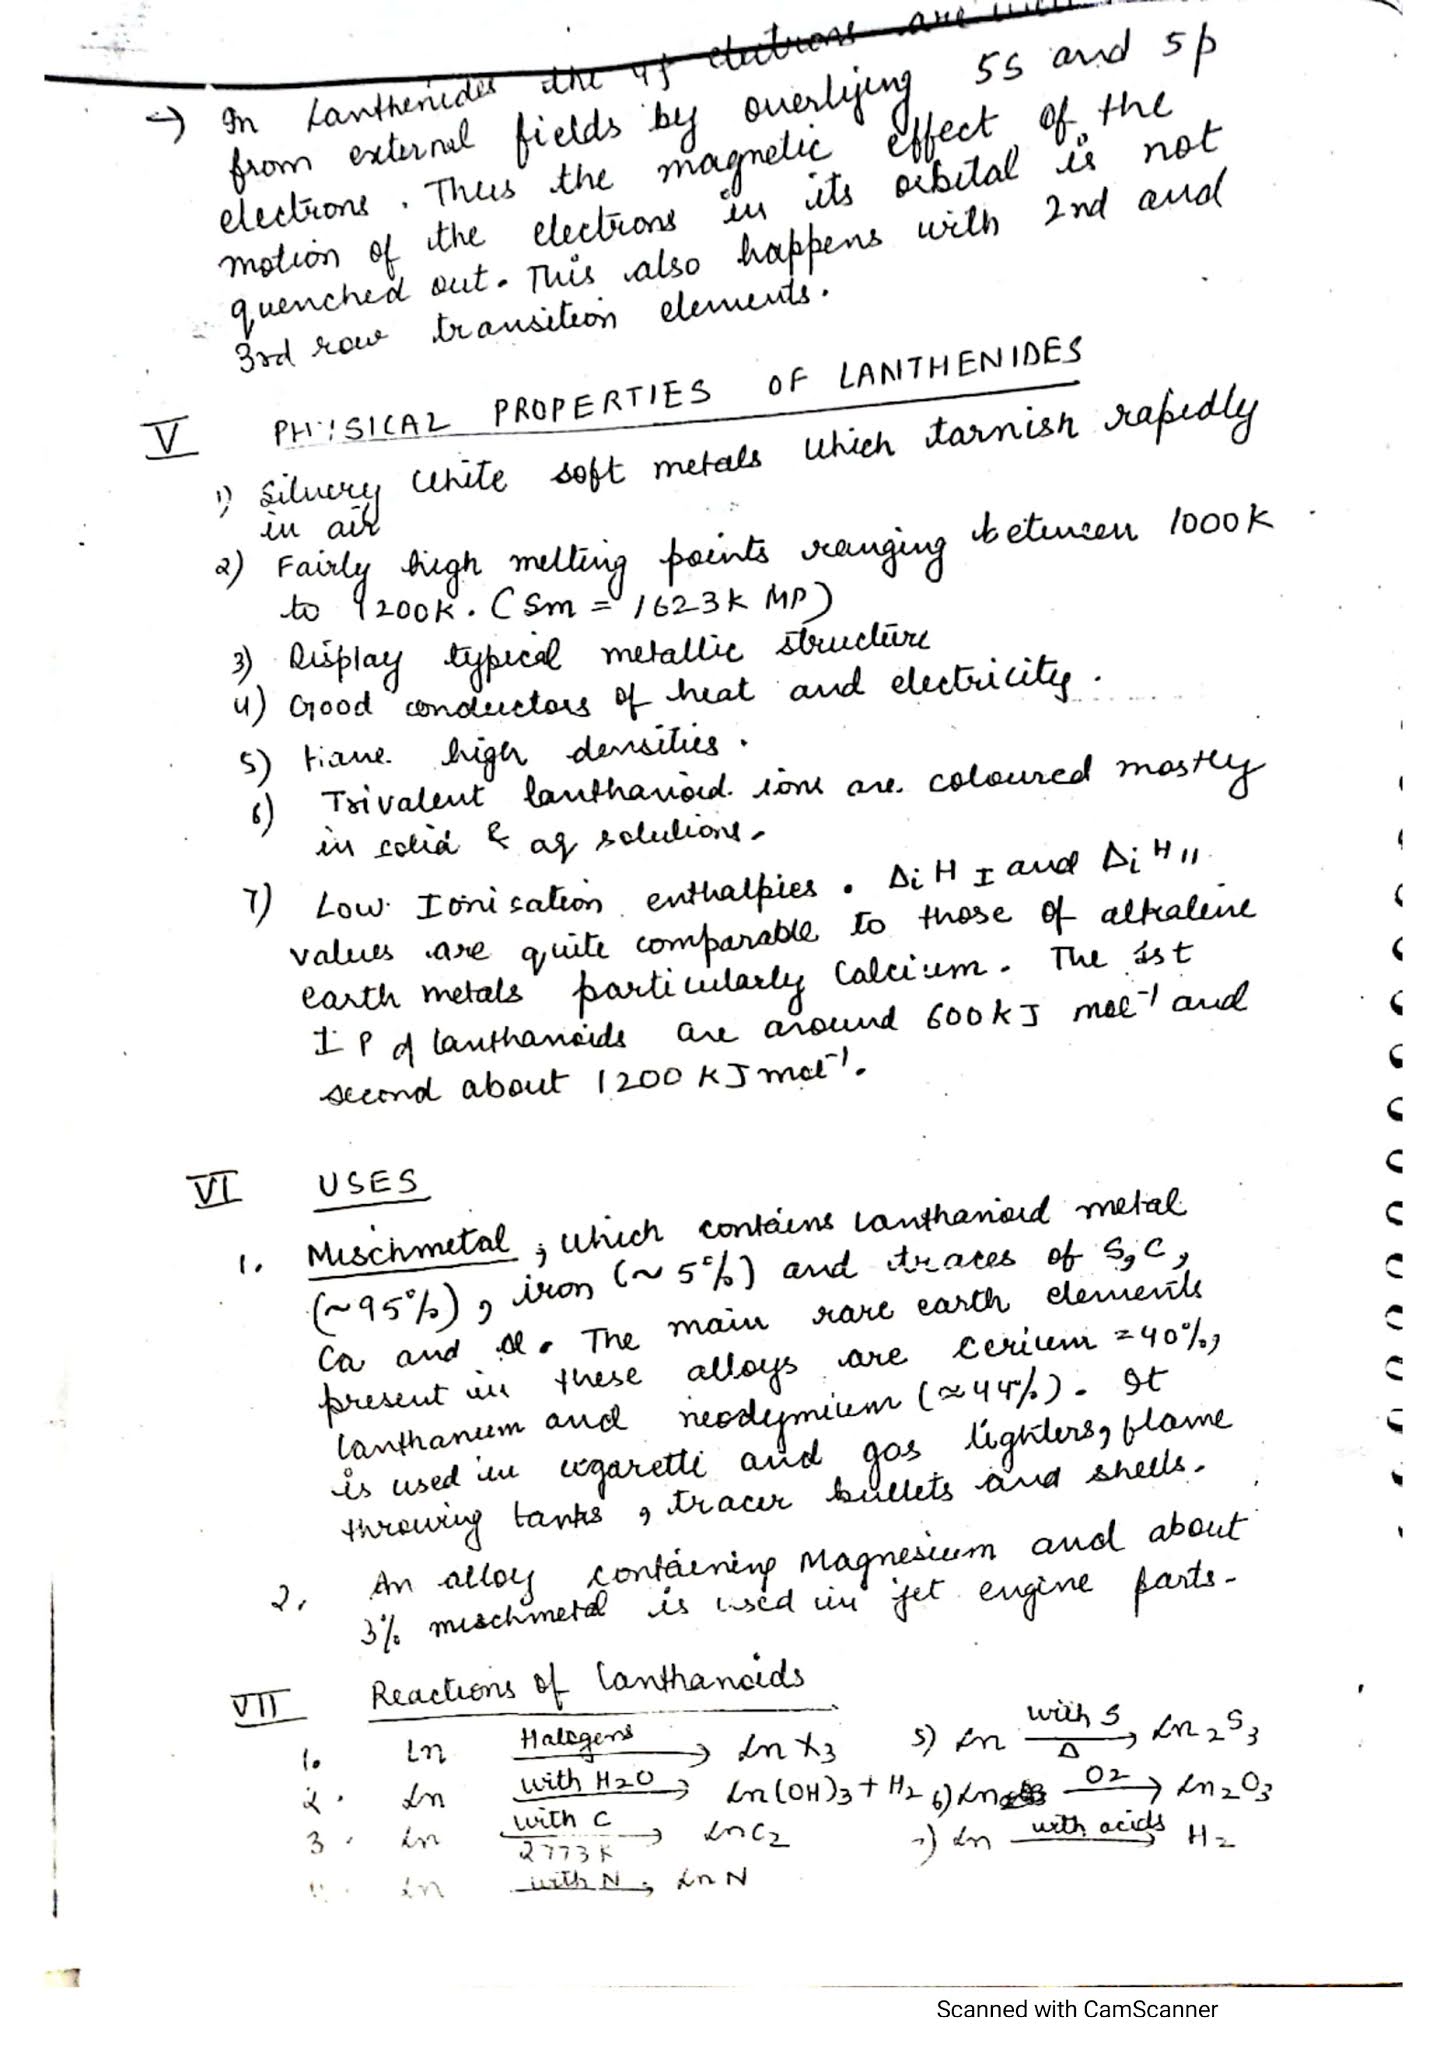 →) In Lanthenides the 4f electrons are
from external fields by overlying 5s and 5p
electrons. Thus the magnetic effect of the
motion of the electrons in its orbital is not
quenched out. This also happens with 2nd and
3rd row transition elements.
V PHYSICAL PROPERTIES OF LANTHENIDES
1) Silvery white soft metals which tarnish rapidly
in air
2) Fairly high melting points ranging between 1000K
to 1200K. (Sm = 1623K MP)
3) Display typical metallic structure
4) Good conductors of heat and electricity.
5) Have high densities.
6) Trivalent lanthanoid ions are coloured mostly
in solid & aq solutions.
7) Low Ionisation enthalpies. ΔiH I and ΔiH II
values are quite comparable to those of alkaline
earth metals particularly Calcium. The 1st
I P of lanthanoids are around 600 kJ mol⁻¹ and
second about 1200 kJ mol⁻¹.
VI USES
1. Mischmetal ; which contains lanthanoid metal
(~95%), iron (~5%) and traces of S, C,
Ca and Al. The main rare earth elements
present in these alloys are cerium ≈40%,
lanthanum and neodymium (≈44%). It
is used in cigarette and gas lighters, flame
throwing tanks, tracer bullets and shells.
2. An alloy containing Magnesium and about
3% mischmetal is used in jet engine parts.
VII Reactions of Lanthanoids
1. Ln —Halogens→ LnX3 5) Ln —with S, Δ→ Ln2S3
2. Ln —with H2O→ Ln(OH)3 + H2 6) Ln —O2→ Ln2O3
3. Ln —with C, 2773K→ LnC2 7) Ln —with acids→ H2
4. Ln —with N→ LnN
Scanned with CamScanner